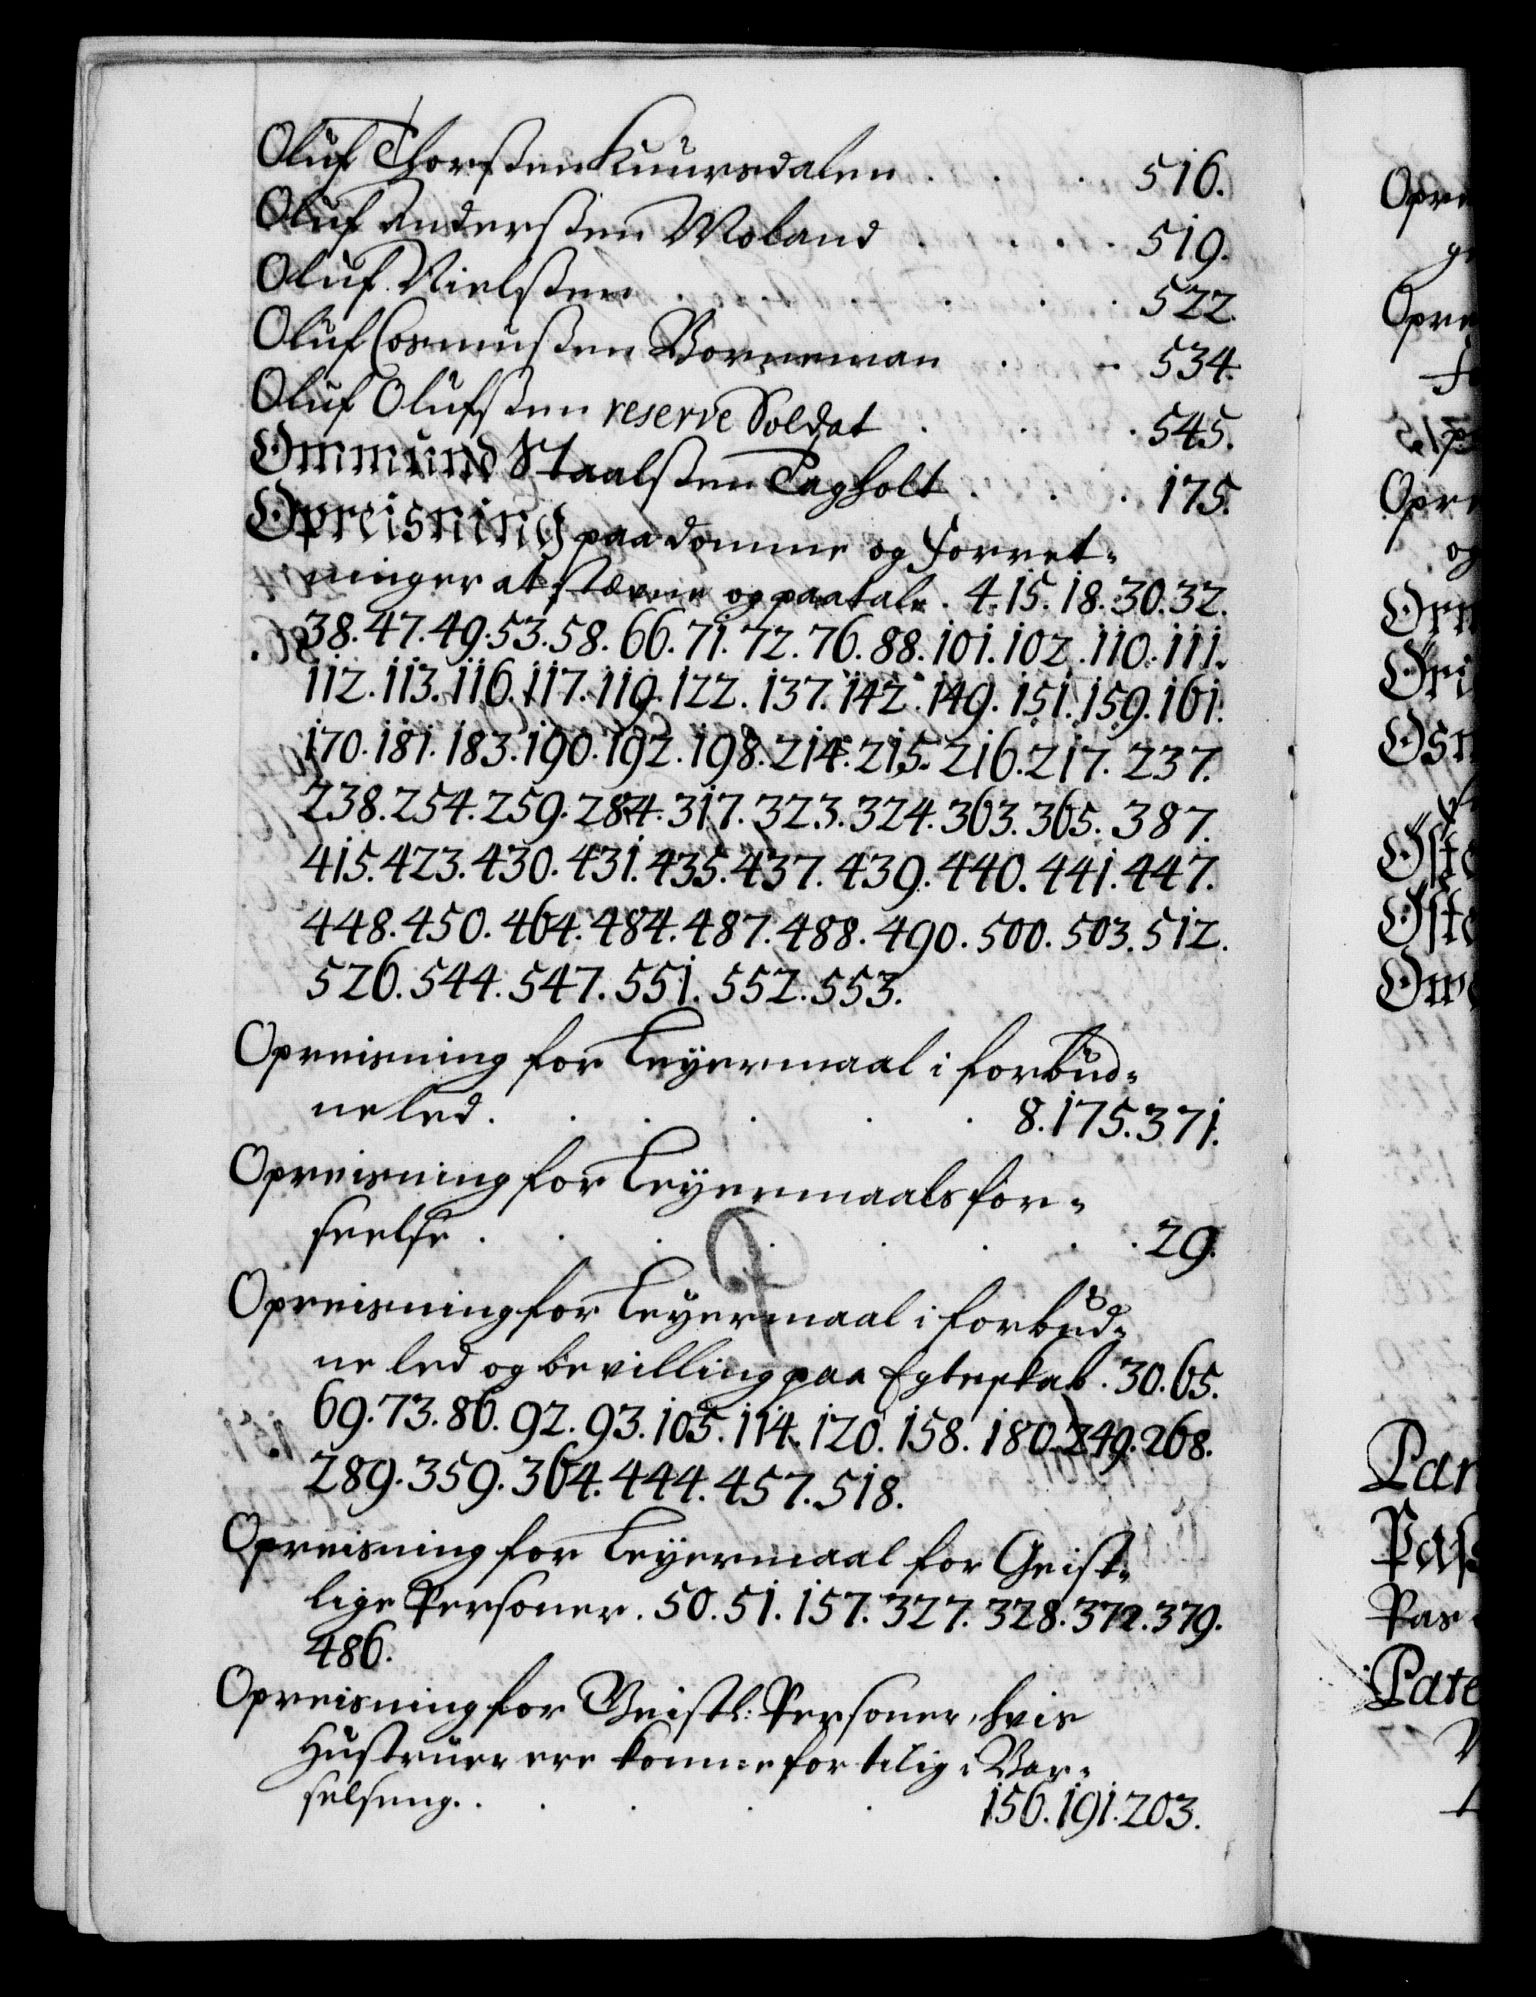 Oluf Thorßen Kuursdalen . . . 516.
Oluf Anderßen Moland . . . . 519.
Oluf Nielßen . . . . . . 522.
Oluf Cosmußen Borneman . . 534.
Oluf Olufsßen reserve Soldat . . . 545.
Ommund Staalßen Tagholt . . . 175.
Opreisning paa domme og Forret-
ninger at stævne og paatale . 4. 15. 18. 30. 32.
38. 47. 49. 53. 58. 66. 71. 72. 76. 88. 101. 102. 110. 111.
112. 113. 116. 117. 119. 122. 137. 142. 149. 151. 159. 161.
170. 181. 183. 190. 192. 198. 214. 215. 216. 217. 237.
238. 254. 259. 284. 317. 323. 324. 363. 365. 387.
415. 423. 430. 431. 435. 437. 439. 440. 441. 447.
448. 450. 464. 484. 487. 488. 490. 500. 503. 512.
526. 544. 547. 551. 552. 553.
Opreisning for Leyermaal i forbud-
ne led . . . . . 8. 175. 371.
Opreisning for Leyermaals for-
seelse . . . . . . . 29.
Opreisning for Leyermaal i forbud-
ne led og bevilling paa Egteskab . 30. 65.
69. 73. 86. 92. 93. 105. 114. 120. 158. 180. 249. 268.
289. 359. 364. 444. 457. 518.
Opreisning for Leyermaal for Geist-
lige Personer . 50. 51. 157. 327. 328. 372. 379.
486.
Opreisning for Geistl: Personer, hvis
Hustruer ere komne for tilig i Bar-
selseng . . . . . 156. 191. 203.